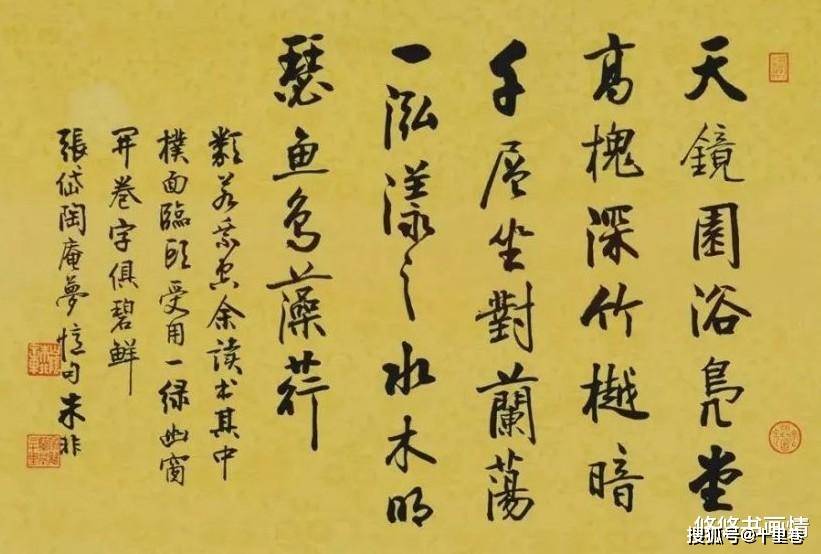 天鏡園浴凫堂
高槐深竹樾暗
千层坐對蘭蕩
一泓漾之水木明
瑟鱼鸟藻荇
類若乘空余读书其中
樸面臨頭受用一绿幽窗
開卷字俱碧鮮
張岱陶庵夢憶句朱非
悠悠书画情
搜狐号@十里巷